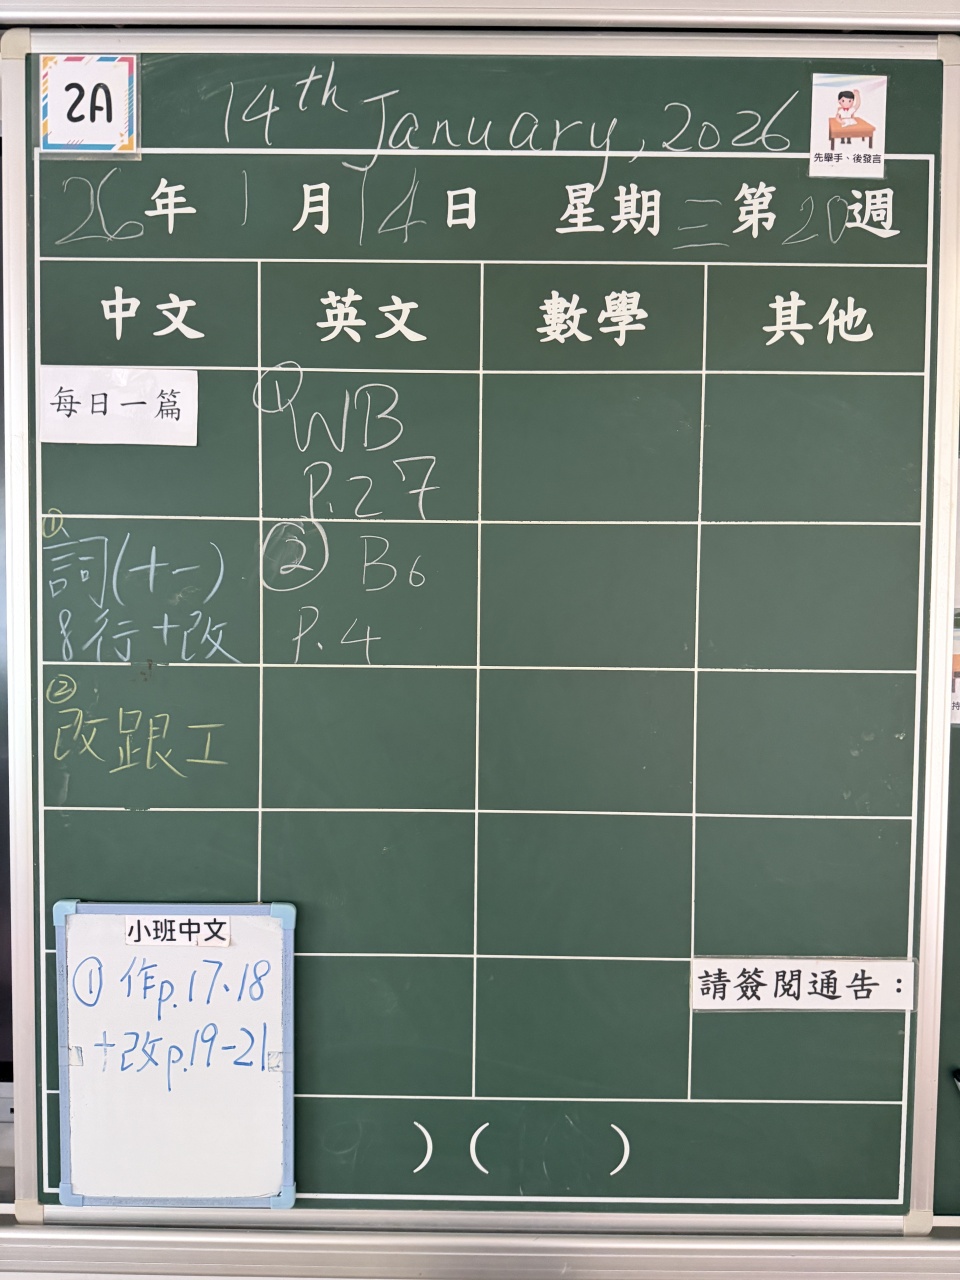 2A
14th January, 2026
先舉手、後發言
26年1月14日 星期三 第20週
中文 英文 數學 其他
每日一篇
① WB
P.27
①
詞(十一)
8行+改
② B6
P.4
②
改跟工
小班中文
① 作p.17、18
+改p.19-21
請簽閱通告：
) ( )
持